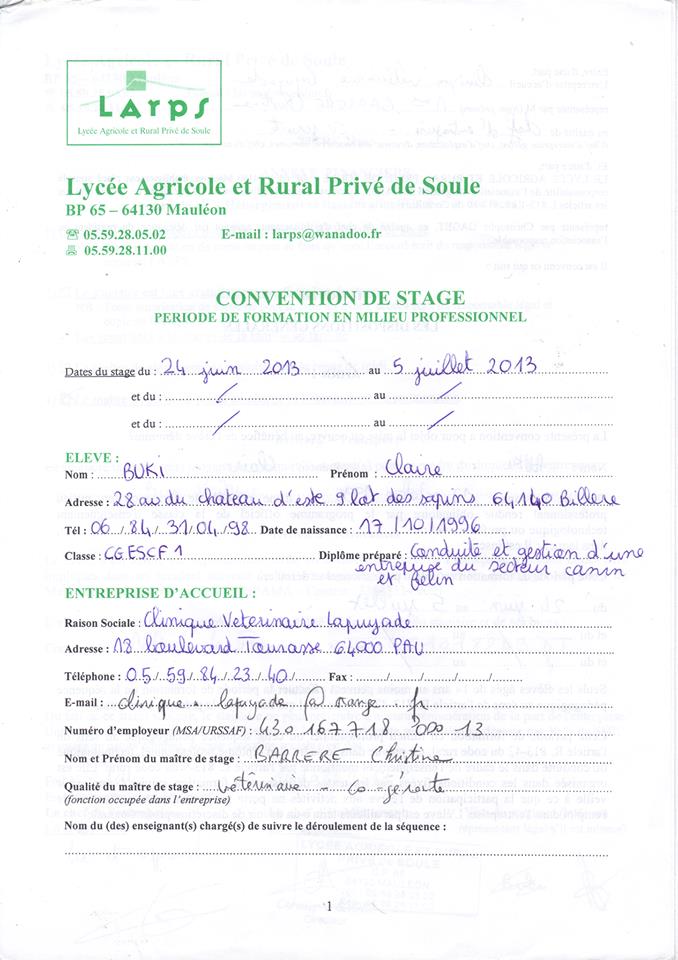 LARPS
Lycée Agricole et Rural Privé de Soule
Lycée Agricole et Rural Privé de Soule
BP 65 – 64130 Mauléon
☎ 05.59.28.05.02 E-mail : larps@wanadoo.fr
05.59.28.11.00
CONVENTION DE STAGE
PERIODE DE FORMATION EN MILIEU PROFESSIONNEL
Dates du stage du : 24 juin 2013 au 5 juillet 2013
et du : / au /
et du : / au /
ELEVE :
Nom : BUKI Prénom : Claire
Adresse : 28 av du chateau d'este 9 lot des sapins 64140 Billere
Tél : 06 / 84 / 31 / 04 / 98 Date de naissance : 17 / 10 / 1996
Classe : CGESCF1 Diplôme préparé : Conduite et gestion d'une
entreprise du secteur canin
et felin
ENTREPRISE D'ACCUEIL :
Raison Sociale : Clinique Veterinaire Lapuyade
Adresse : 18 boulevard Tourasse 64000 PAU
Téléphone : 05 / 59 / 84 / 23 / 40 / Fax : / / / / /
E-mail : clinique . lapuyade @ orange . fr
Numéro d'employeur (MSA/URSSAF) : 430 167 718 000 13
Nom et Prénom du maître de stage : BARRERE Christine
Qualité du maître de stage : Vétérinaire - co-gérante
(fonction occupée dans l'entreprise)
Nom du (des) enseignant(s) chargé(s) de suivre le déroulement de la séquence :
1